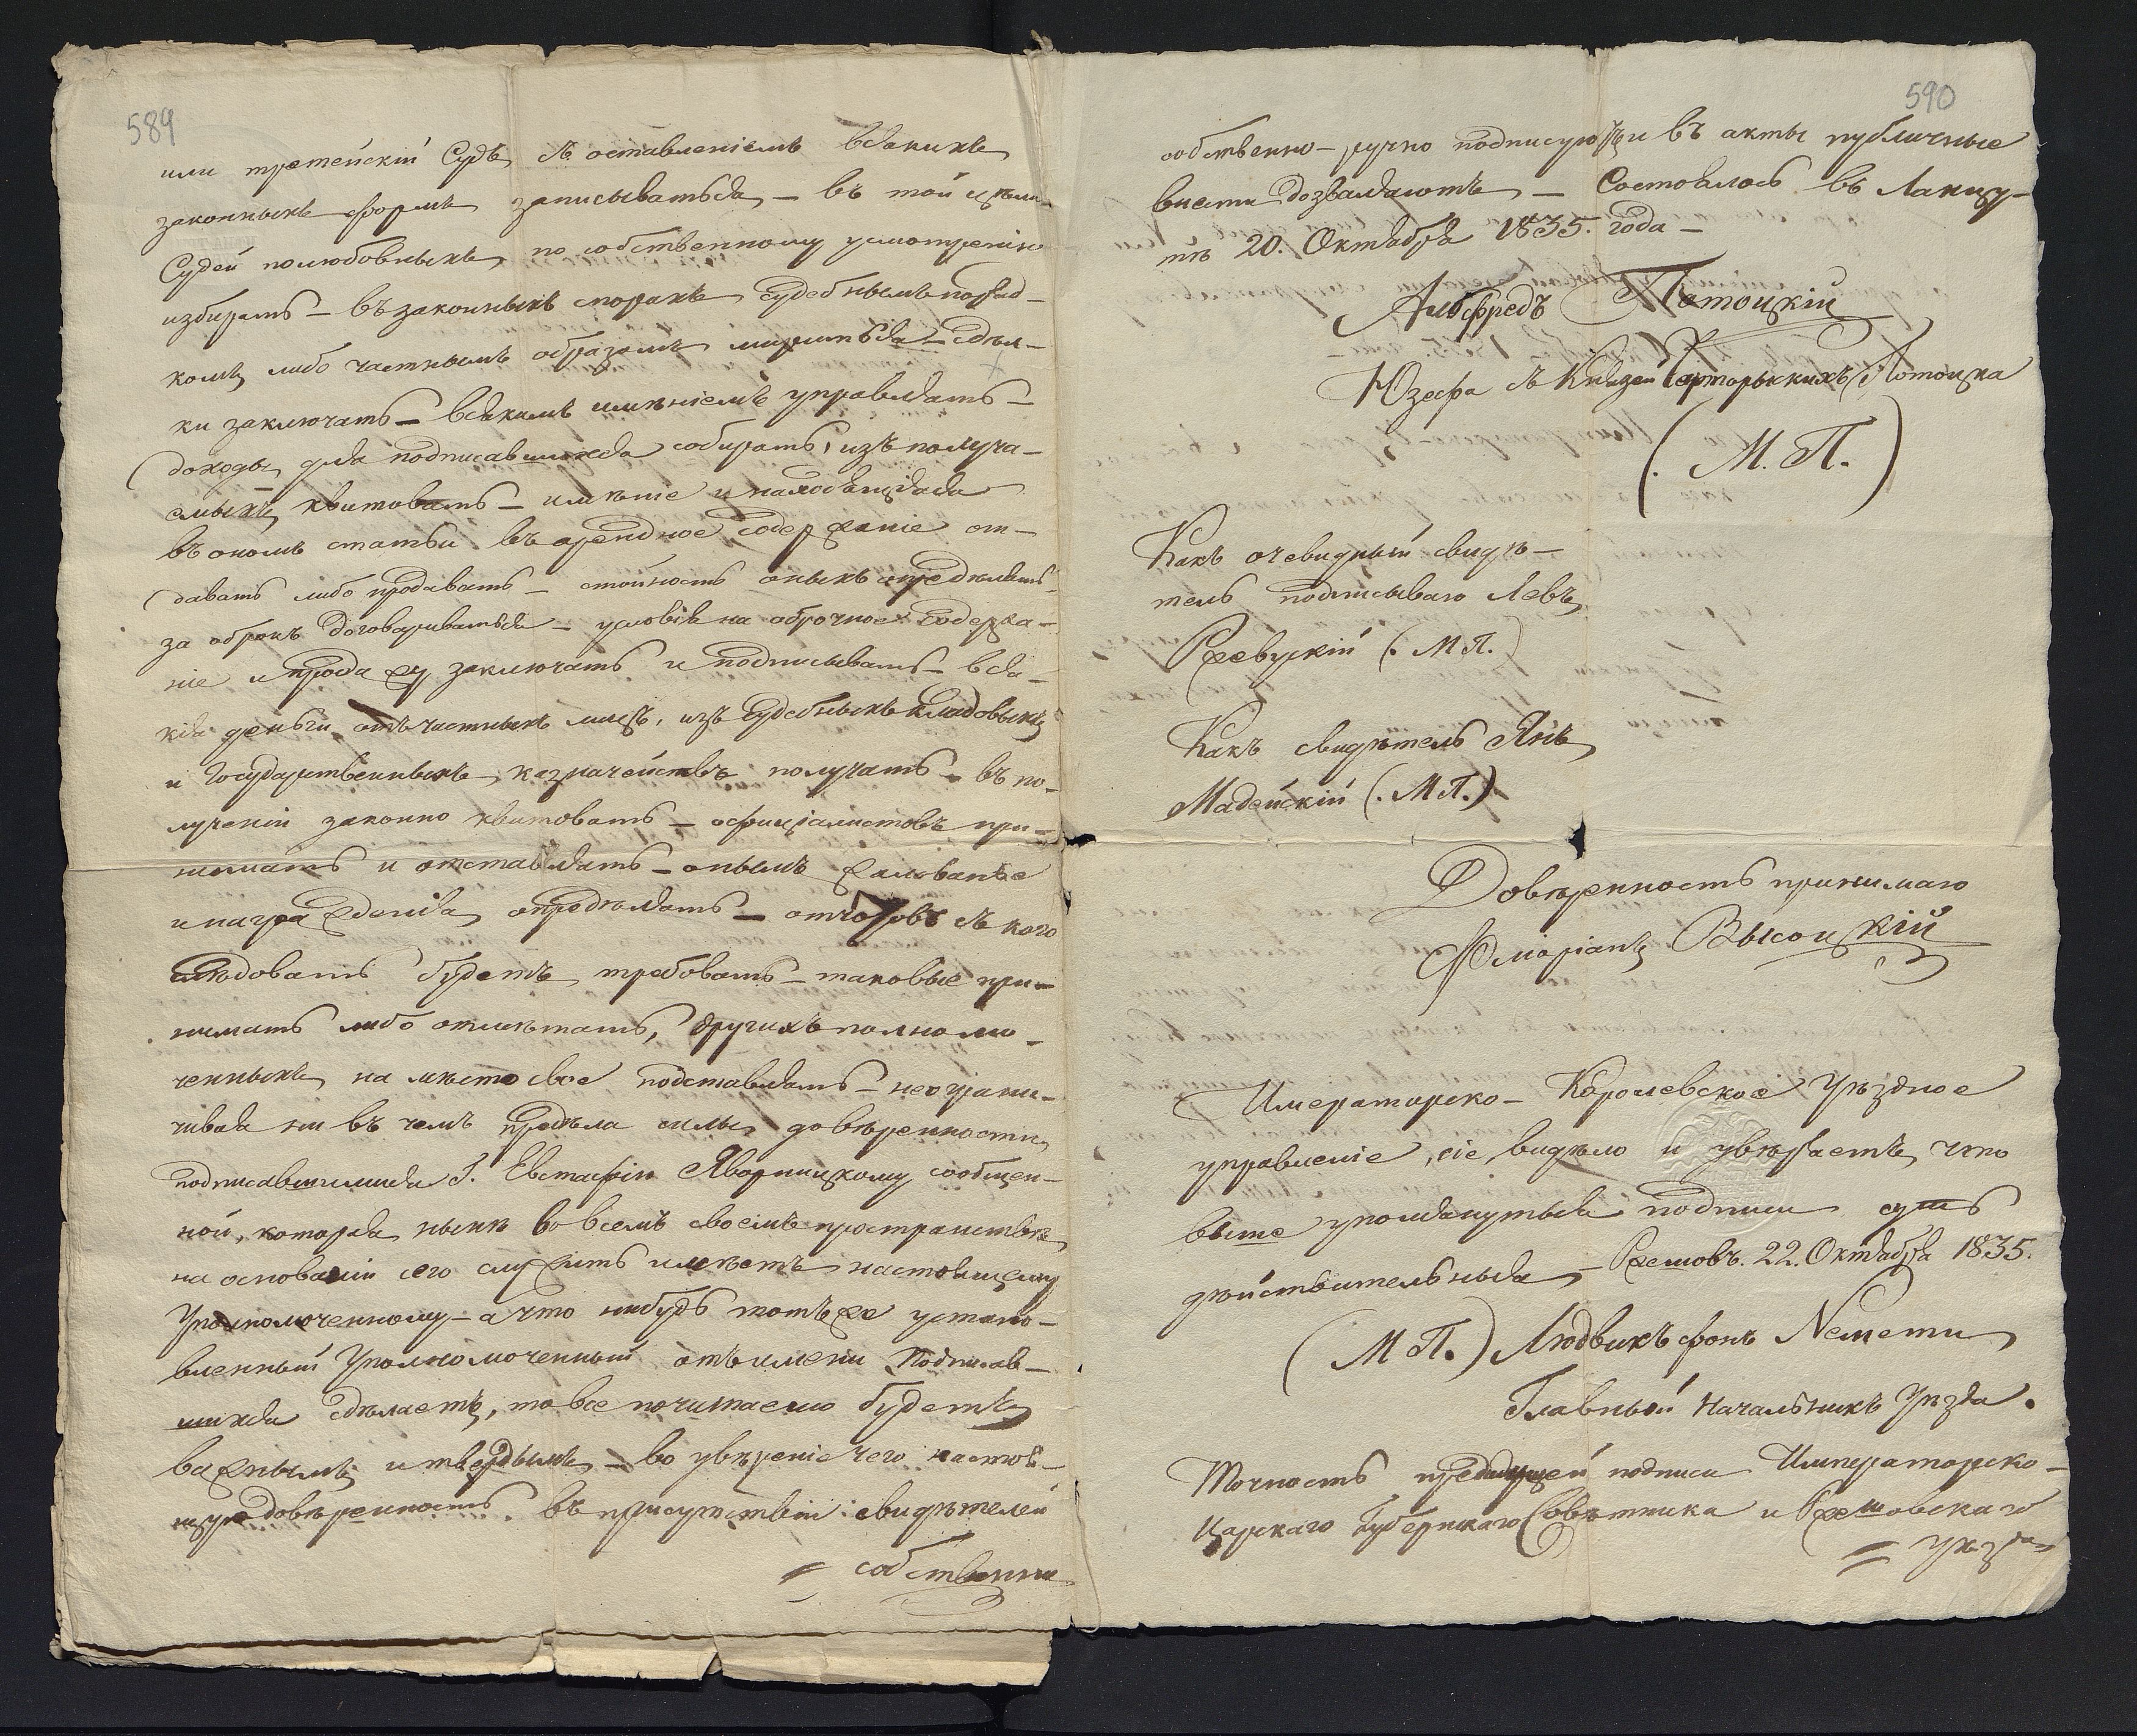 589
или третейскій Судъ, съ оставленіемъ всякихъ
законныхъ формъ записыватьься – въ той цѣли
Судей полюбовныхъ, по собственному усмотренію
избирать – въ законныхъ спорахъ судебнымъ поряд-
комъ, либо частнымъ образомъ миритьься – сдѣл-
ки заключать – всякимъ имѣніемъ управлять –
доходы для подписавшихся собирать, изъ получа-
емыхъ квитовать – имѣніе и находящіяся
въ ономъ статьи въ арендное содержаніе от-
давать либо продавать – стоимость оныхъ опредѣлять
за оброкъ договариватьься – условія на оброчное содержа-
ніе и продажу заключать и подписывать – вся-
кія деньги отъ частныхъ лицъ, изъ судебныхъ кладовыхъ
и Государственныхъ казначействъ получать – въ по-
лученіи законно квитовать – официалистовъ при-
нимать и отставлять – онымъ жалованье
и награжденія опредѣлять – отчотовъ съ кого
слѣдовать будетъ требовать – таковые при-
нимать либо отмѣтать, другихъ полномо-
ченныхъ на мѣсто свое подставлять – неограни-
чивая ни въ чемъ предѣла силы довѣренности,
подписавшимися Г. Евстафію Яворницкому сообщен-
ной, которая нынѣ во всемъ своемъ пространствѣ
на основаніи сего служить имѣетъ настоящему
Уполномоченному – а что нибудь тотъ же устано-
вленный Уполномоченный отъ имени Подписав-
шихся сдѣлаетъ, то все почитаемо будетъ
важнымъ и твердымъ – во увѣреніе чего настоя-
щую довѣренность въ присутствіи свидѣтелей
собственно
590
собственно-ручно подписуютъ и въ акты публичные
внести дозваляютъ – Состоялось въ Ланцу-
тѣ 20. Октября 1835. года –
Альфредъ Потоцкій
Юзефа съ Князей Чарторыжскихъ Потоцка
(. М. П. )
Какъ очевидный свидѣ-
тель подписываю Левъ
Ржевускій (. М П.)
Какъ свидѣтель Янъ
Мадейскій (. М П.)
Довѣренность принимаю
Флоріанъ Высоцкій
Императорско-Королевское Уѣздное
управленіе, сіе видѣло и увѣряетъ, что
выше упомянутыя подписи суть
дѣйствительныя – Решовъ. 22. Октября 1835.
(М П.) Людвикъ фонъ Немети
Главный Начальникъ Уѣзда.
Точность предидущей подписи Императорско-
Царскаго Губернскаго Совѣтника и Решовскаго
Уѣзда